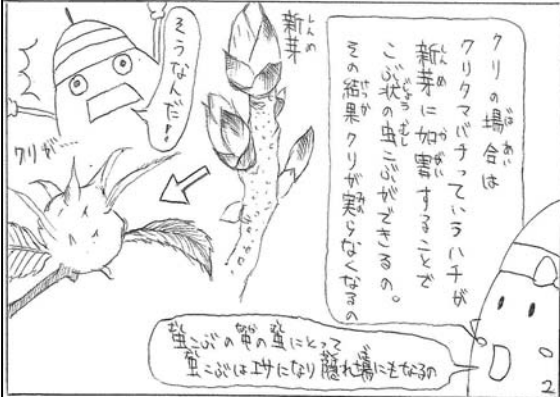 クリの場合は
クリタマバチっていうハチが
新芽に加害することで
こぶ状の虫こぶができるの。
その結果クリが実らなくなるの
新芽の
そうなんだ！
クリが…
虫こぶの中の虫にとって
虫こぶはエサになり隠れ場にもなるの
2